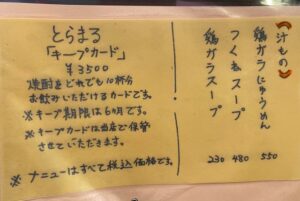 とらまる
「キープカード」
¥3500
焼酎をどれでも10杯分
お飲みいただけるカードです。
※キープ期限は6ヶ月です。
※キープカードは当店で保管
させていただきます。
※メニューはすべて税込価格です。
(汁もの)
鶏ガラにゅうめん 550
つくねスープ 480
鶏ガラスープ 230